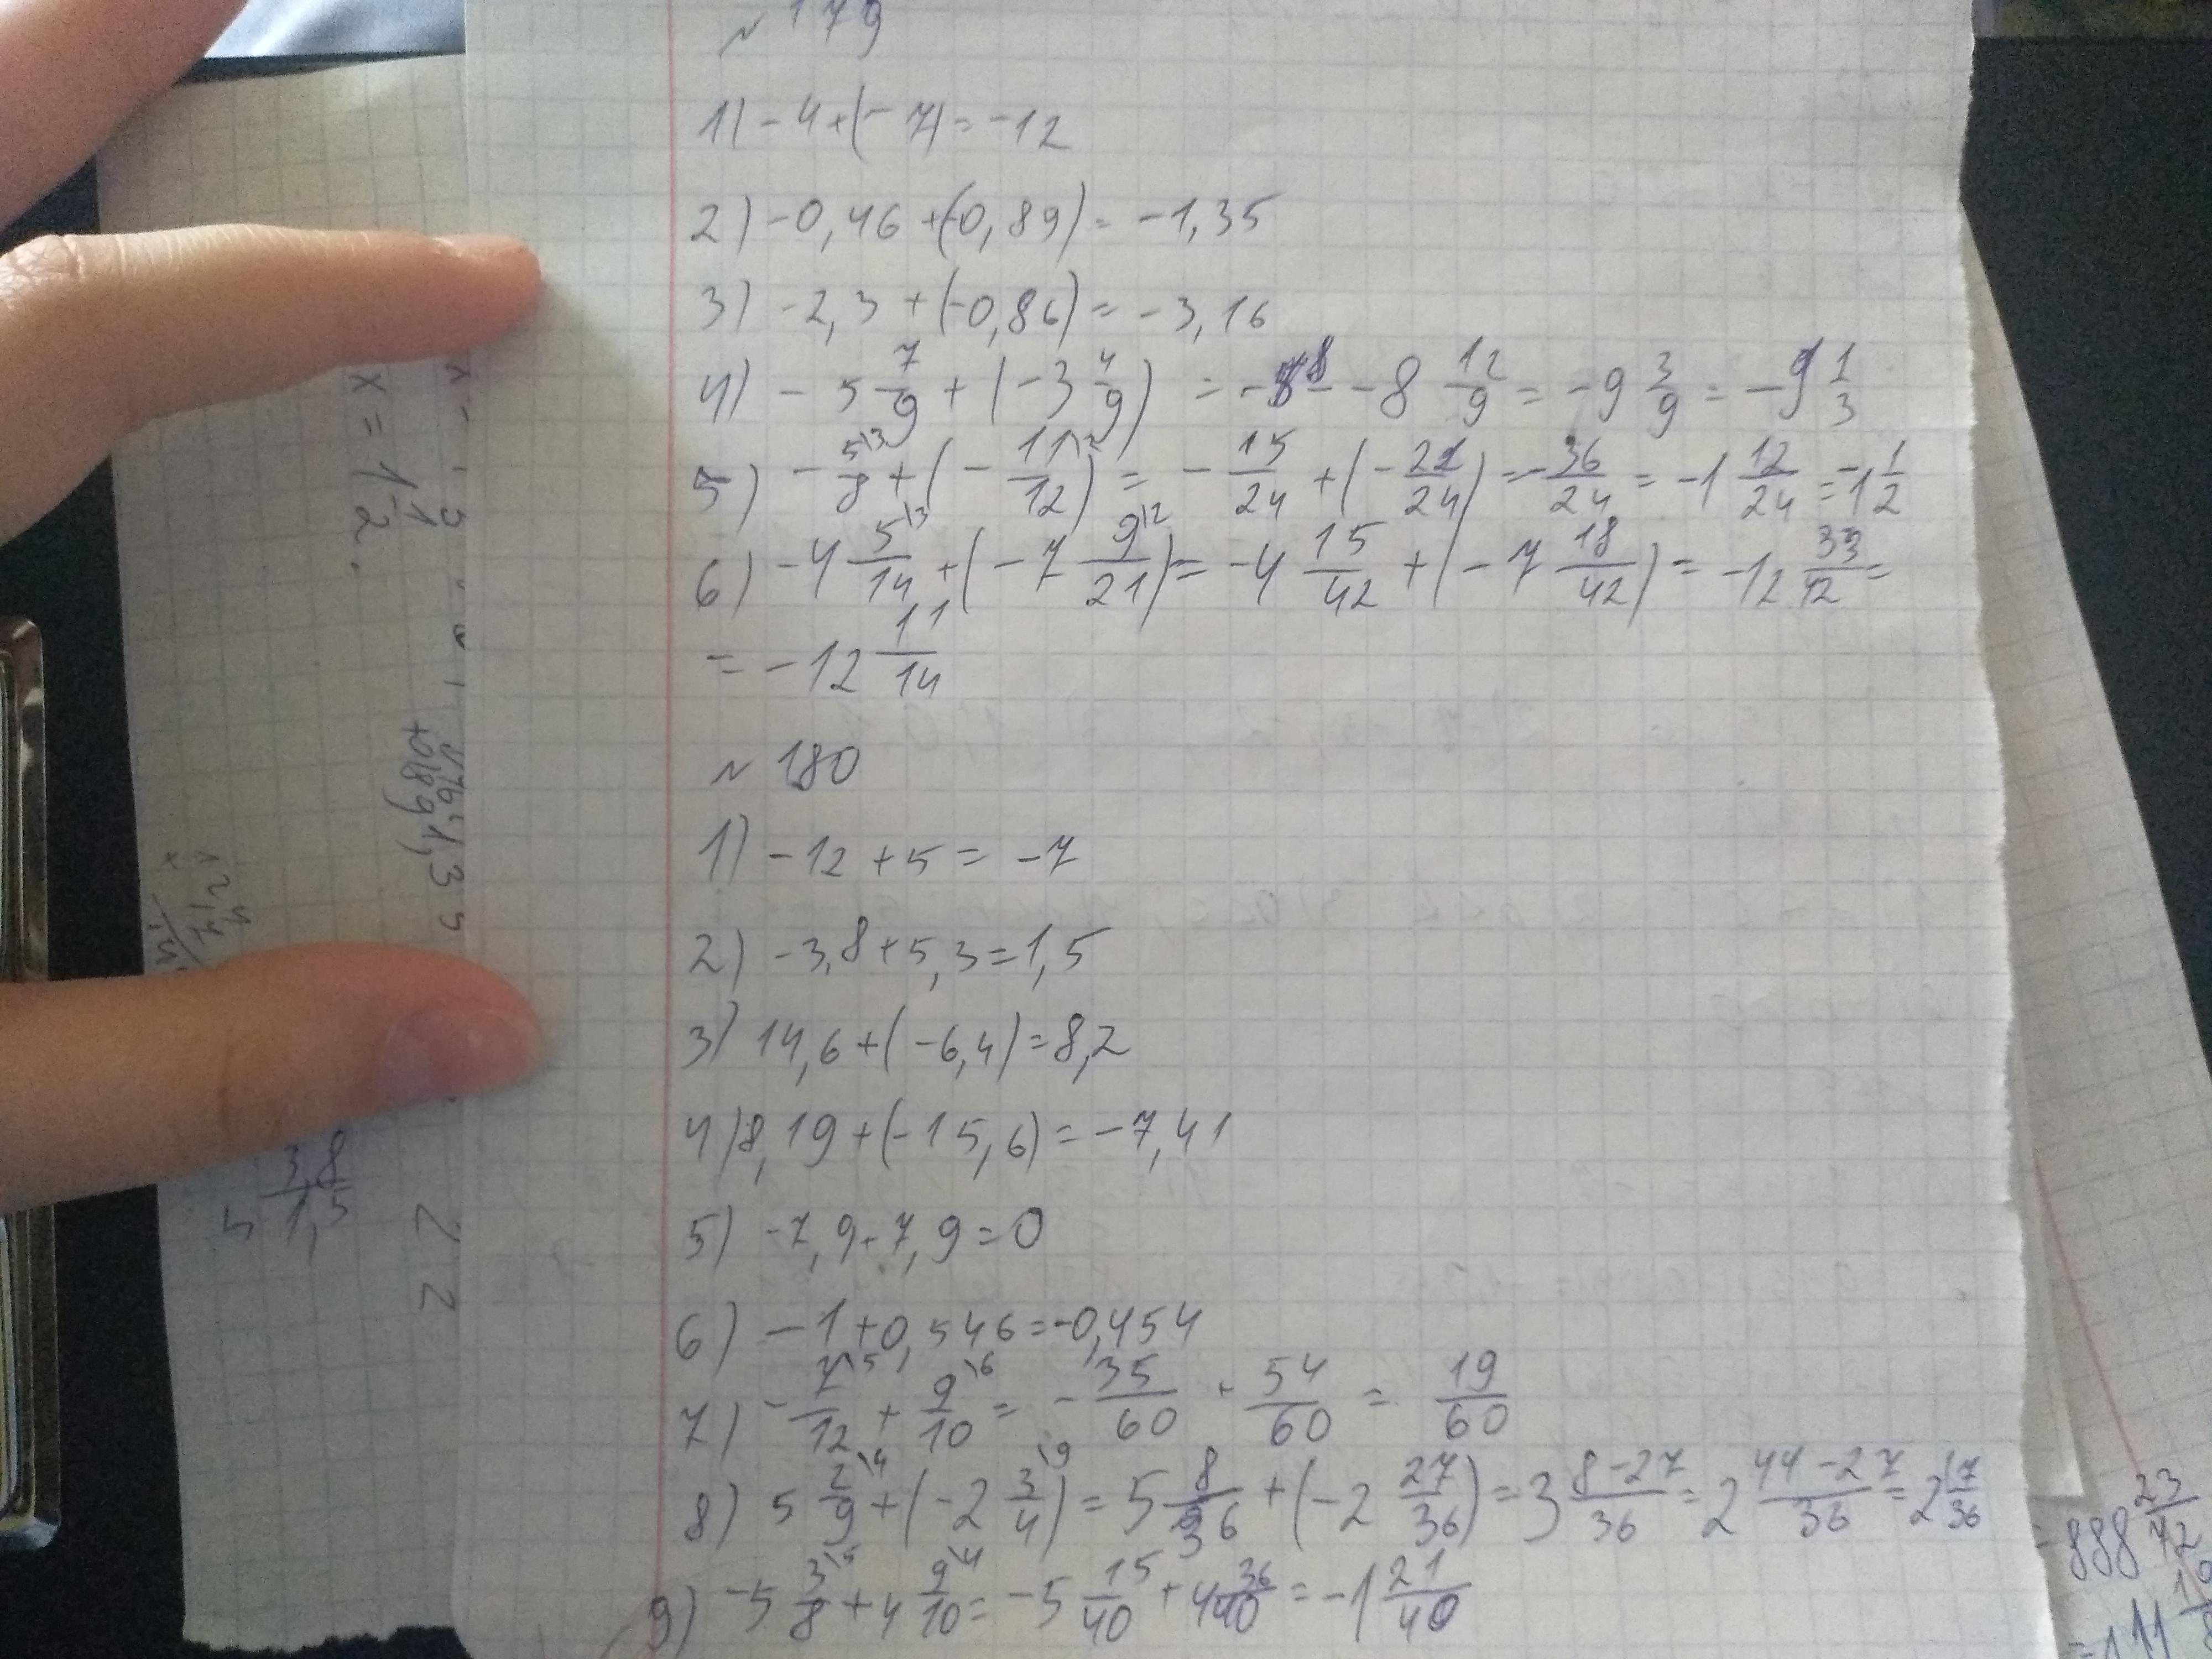 ~ 179
1) -4+(-7)=-12
2) -0,46+(-0,89)=-1,35
3) -2,3+(-0,86)=-3,16
4) -5 7/9+(-3 4/9) = -8 12/9=-9 3/9=-9 1/3
5) -5\3/8+(-11\2/12)=-15/24+(-22/24)=-36/24=-1 12/24=-1 1/2
6) -4 5\3/14+(-7 9\2/21)=-4 15/42+(-7 18/42)=-12 33/42=
=-12 11/14
~ 180
1) -12+5=-7
2) -3,8+5,3=1,5
3) 14,6+(-6,4)=8,2
4) 8,19+(-15,6)=-7,41
5) -7,9+7,9=0
6) -1+0,546=-0,454
7) -7\5/12+9\6/10=-35/60+54/60=19/60
8) 5 2\4/9+(-2 3\9/4)=5 8/36+(-2 27/36)=3 8-27/36=2 44-27/36=2 17/36
9) -5 3\5/8+4 9\4/10=-5 15/40+4 36/40=-1 21/40
x=1 1/2.
3,8
1,5
888 23/72